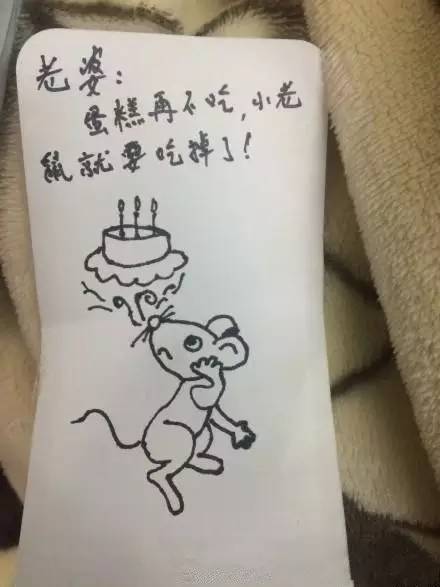 老婆：
蛋糕再不吃，小老
鼠就要吃掉了！